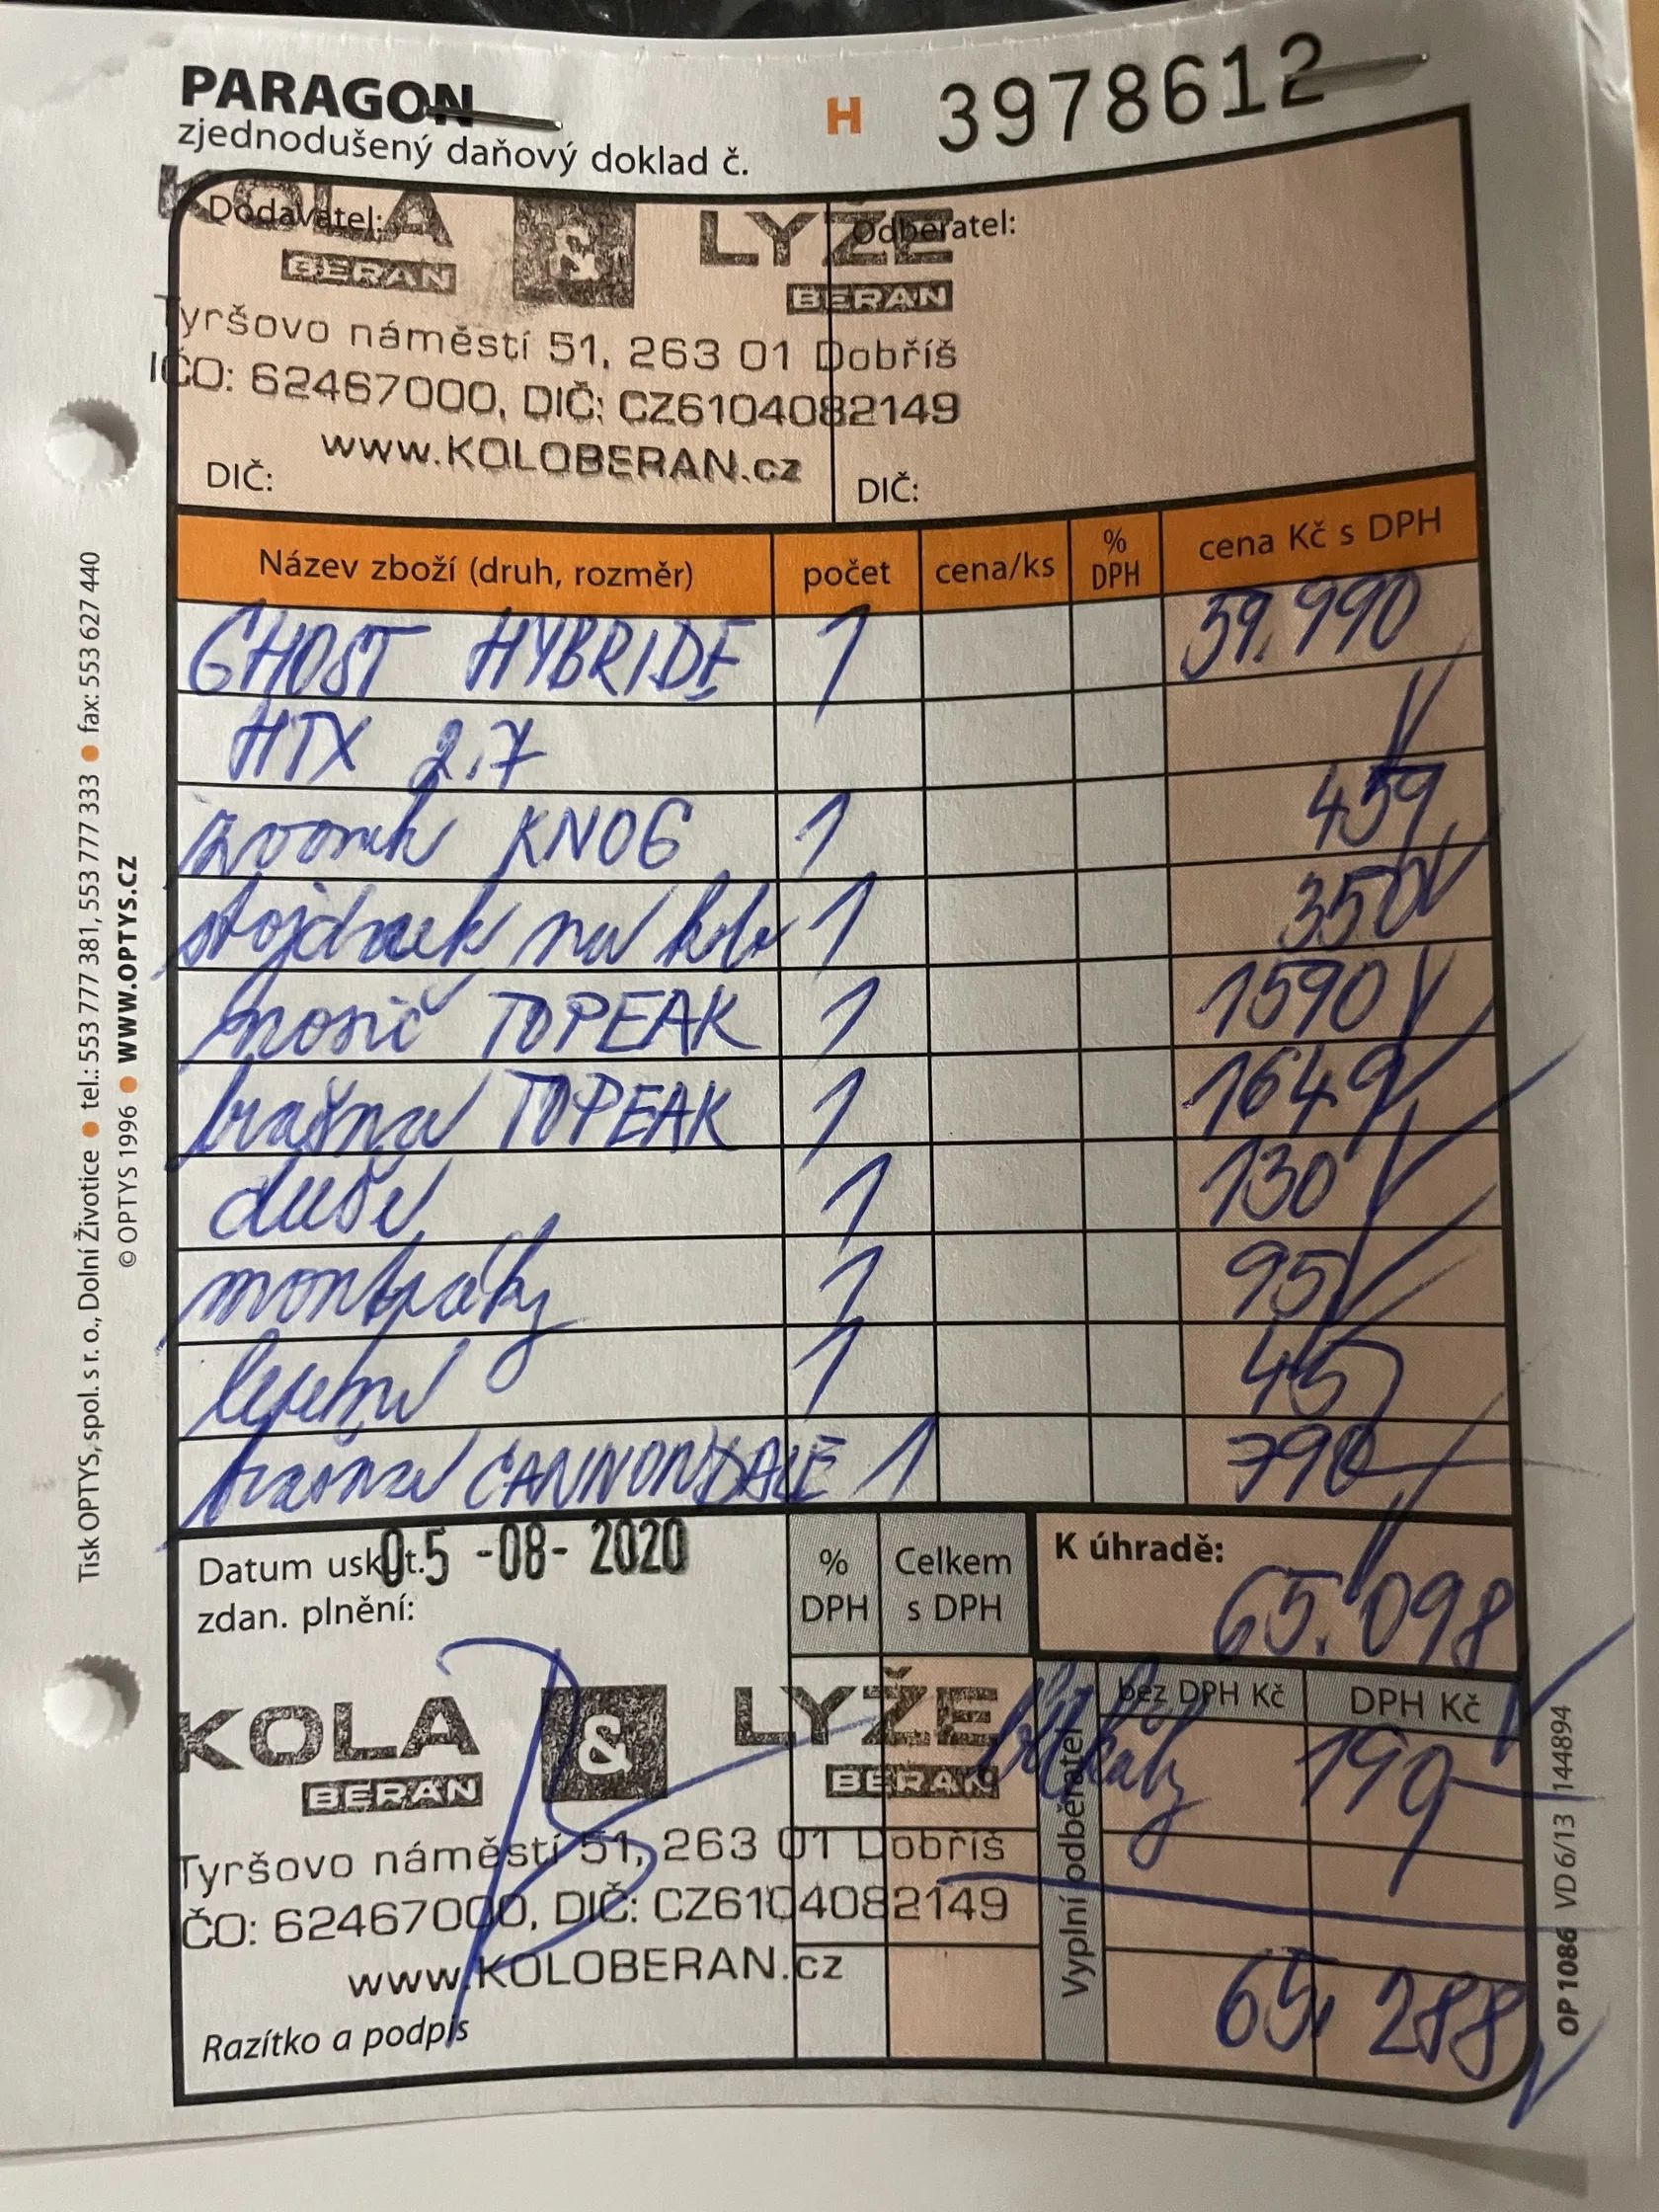 PARAGON
zjednodušený daňový doklad č.
H 3978612
Dodavatel:
Odběratel:
KOLA & LYŽE
BERAN BERAN
Tyršovo náměstí 51, 263 01 Dobříš
IČO: 62467000, DIČ: CZ6104082149
www.KOLOBERAN.cz
DIČ:
DIČ:
Název zboží (druh, rozměr) počet cena/ks % DPH cena Kč s DPH
GHOST HYBRIDE 1 59.990
HTX 2.7
zvonek KNOG 1 459
stojánek na kolo 1 350
nosič TOPEAK 1 1590
brašna TOPEAK 1 1649
duše 1 130
montpáky 1 95
lepení 1 45
brašna CANNONDALE 1 790
Datum uskut. 05 -08- 2020
zdan. plnění:
% DPH
Celkem s DPH
K úhradě:
65.098
bez DPH Kč DPH Kč
190
65. 288
Vyplní odběratel
KOLA & LYŽE
BERAN BERAN
Tyršovo náměstí 51, 263 01 Dobříš
ČO: 62467000, DIČ: CZ6104082149
www.KOLOBERAN.cz
Razítko a podpis
Tisk OPTYS, spol. s r. o., Dolní Životice • tel.: 553 777 381, 553 777 333 • fax: 553 627 440
© OPTYS 1996 • WWW.OPTYS.CZ
OP 1086 VD 6/13 144894